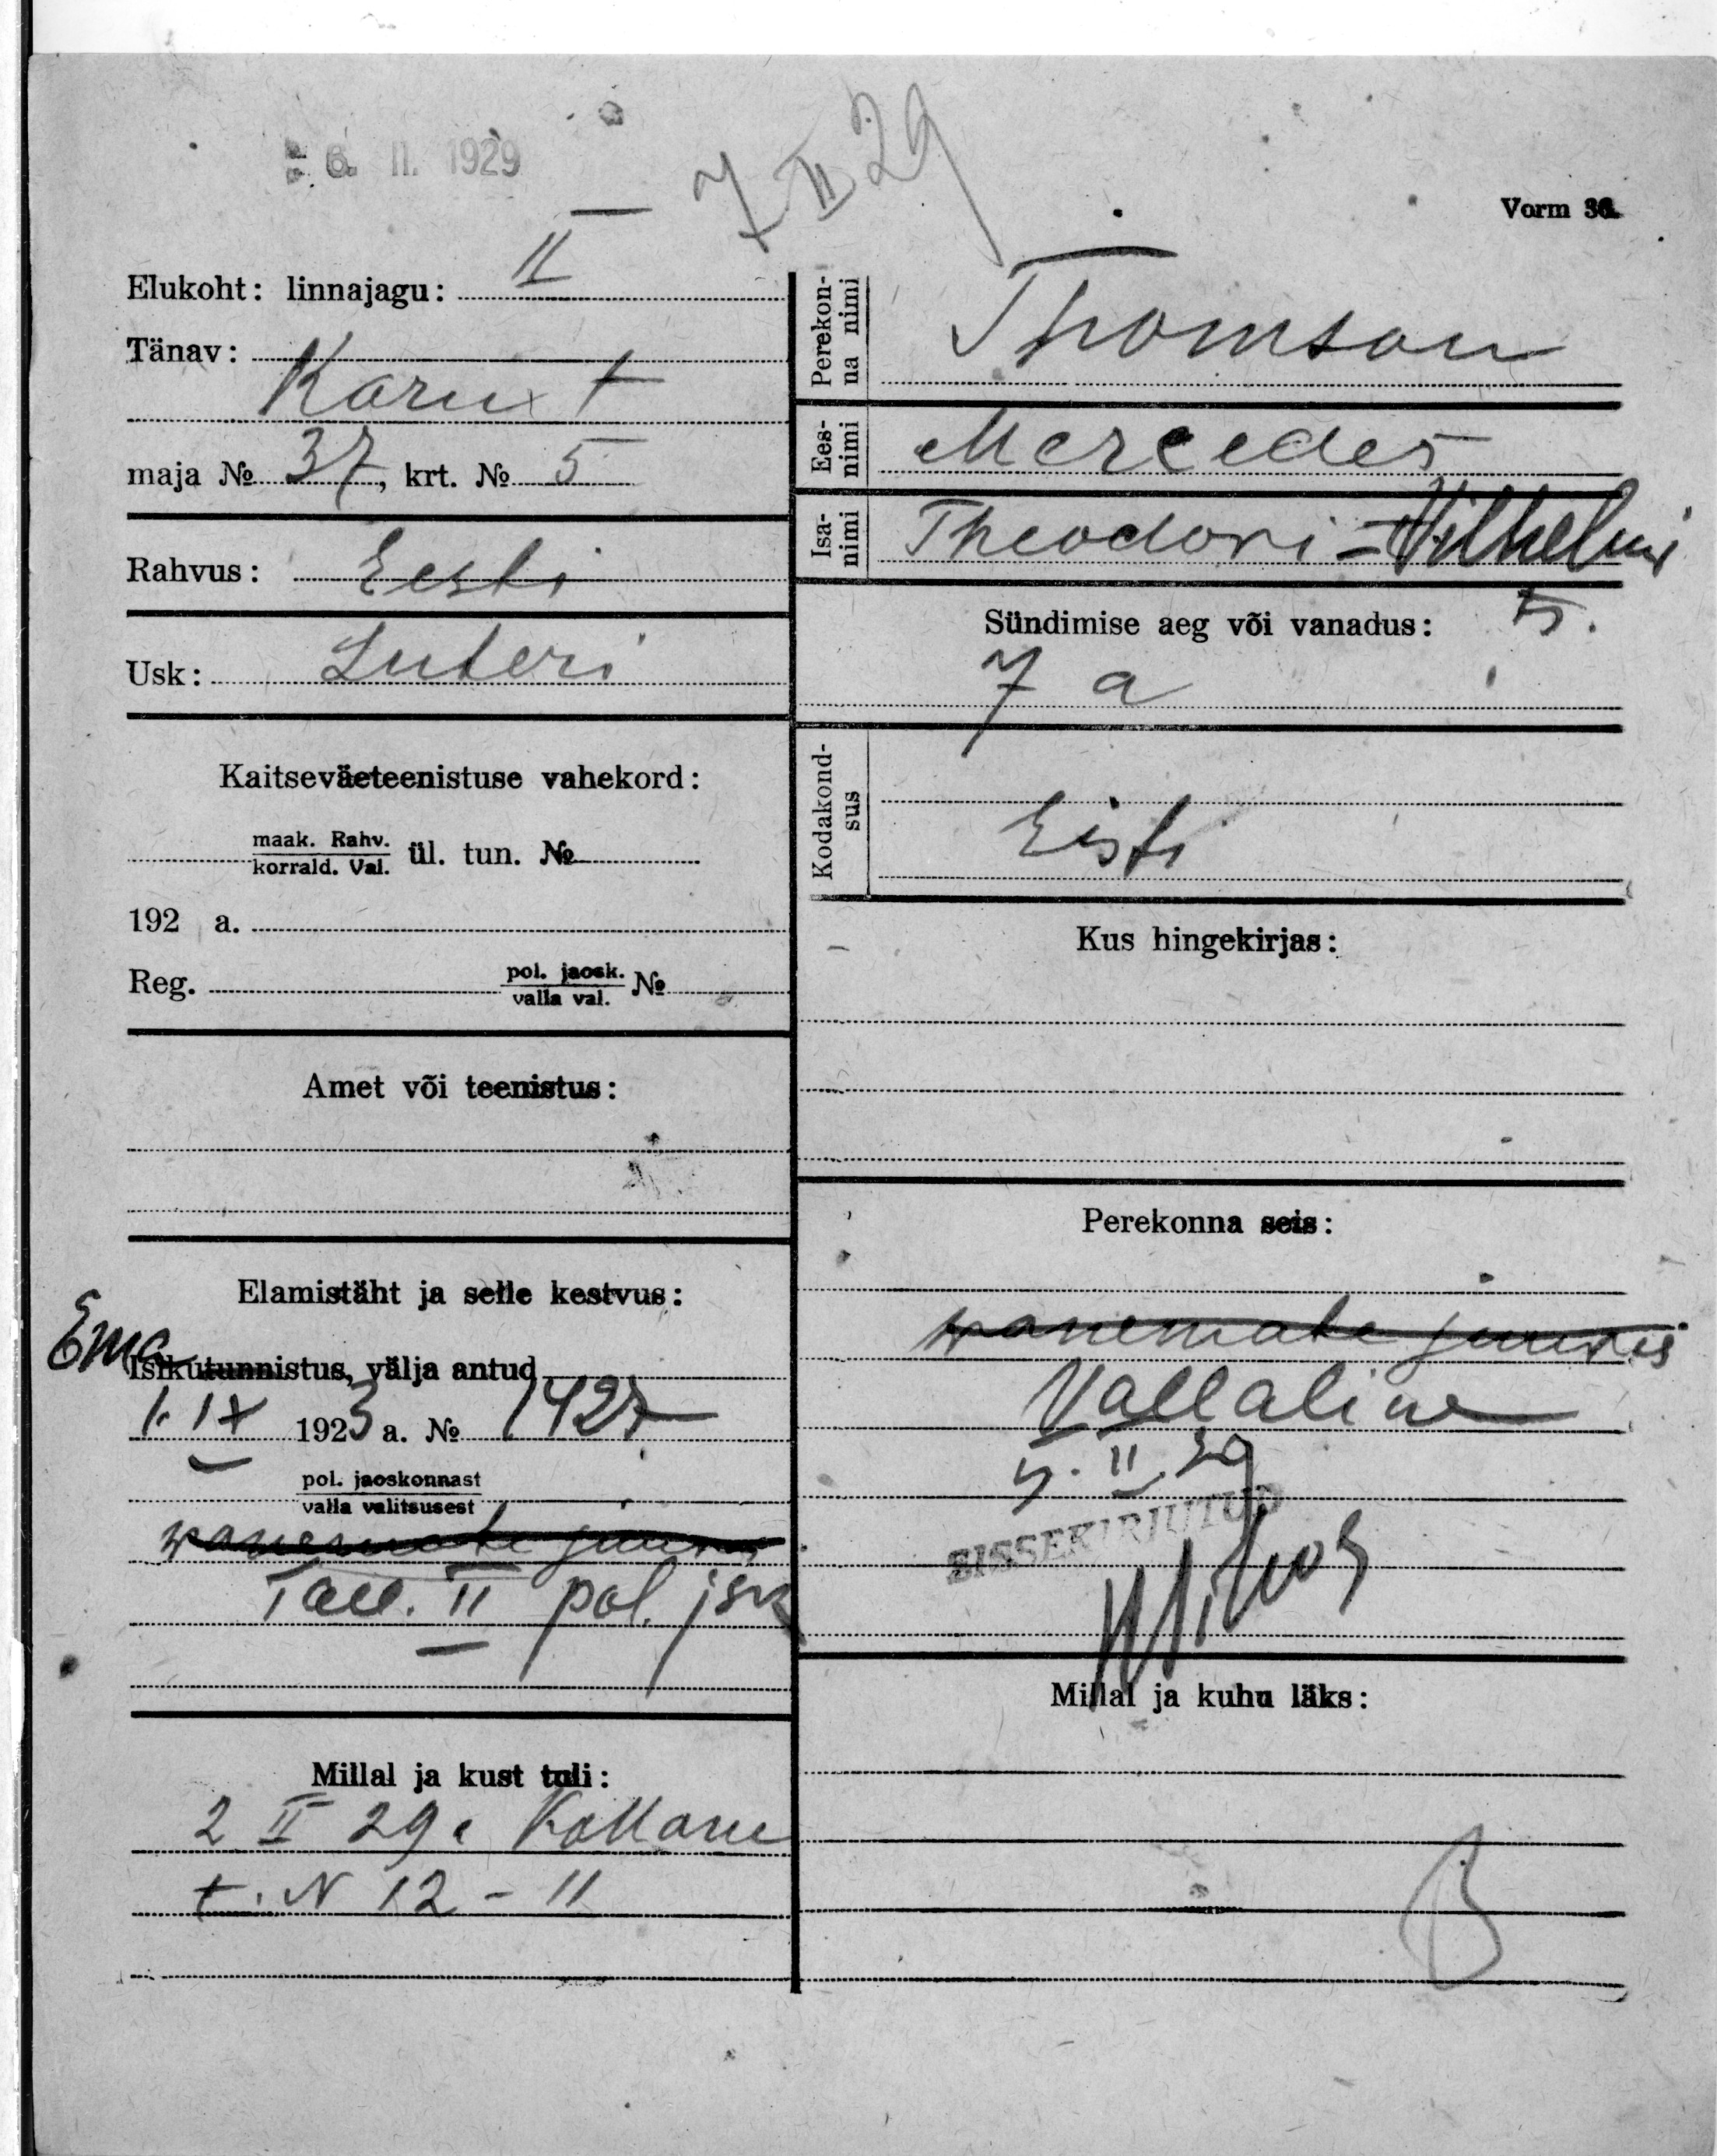 6. II. 1929
7 II 29
Vorm 36.
Elukoht: linnajagu: II
Tänav:
Karu t
maja № 37, krt. № 5
Rahvus: Eesti
Usk: Luteri
Kaitseväeteenistuse vahekord:
maak. Rahv.
korrald. Val. ül. tun. №
192 a.
Reg. pol. jaosk.
valla val. №
Amet või teenistus:
Elamistäht ja selle kestvus:
Ema
Isikutunnistus, välja antud
1. IX 1923 a. № 1427
pol. jaoskonnast
valla valitsusest
wanemate juures
Tall. II pol. jsk
Millal ja kust tuli:
2 II 29 a Kollane
t. N 12 - 11
Perekon-
na nimi
Thomson
Ees-
nimi
Mercedes
Isa-
nimi
Theodori = Vilhelmi
t.
Sündimise aeg või vanadus:
7 a
Kodakond-
sus
Eesti
Kus hingekirjas:
Perekonna seis:
wanemate juures
Vallaline
5. II. 29
SISSEKIRJUTUD
Millal ja kuhu läks: